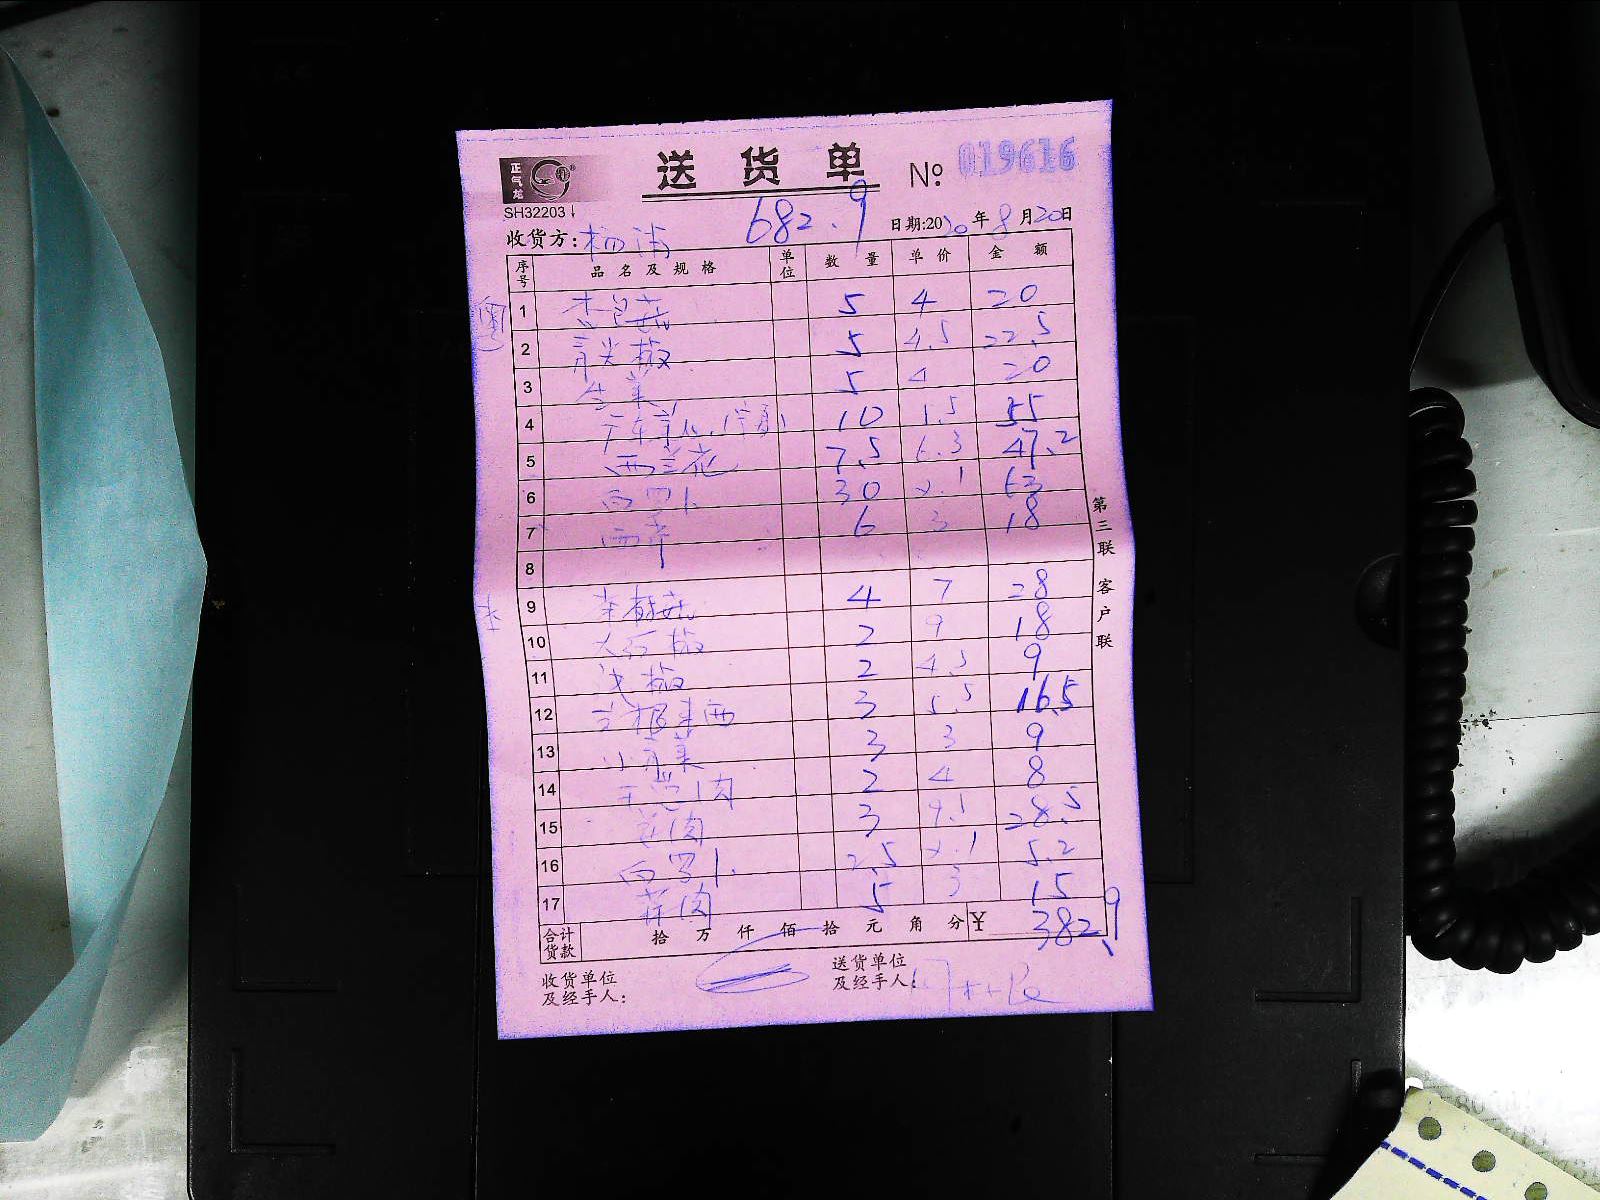 正气龙
送货单 № 019616
SH32203
682.9
收货方: 杨浦 日期:2020年8月20日
序号 品名及规格 单位 数量 单价 金额
粤
1 杏鲍菇 5 4 20
2 青尖椒 5 4.5 22.5
3 生菜 5 4 20
4 10 5.5 55
5 西兰花 7.5 6.3 47.2
6 白罗卜 30 2.1 63
7 西芹 6 3 18
8
本
9 茶树菇 4 7 28
10 大红椒 2 9 18
11 尖椒 2 4.5 9
12 3 5.5 16.5
13 小青菜 3 3 9
14 2 4 8
15 肉 3 9.5 28.5
16 白罗卜 2.5 2.1 5.2
17 肉 5 3 15
合计货款 拾 万 仟 佰 拾 元 角 分 ¥ 382.9
收货单位及经手人:
送货单位及经手人:
第三联 客户联